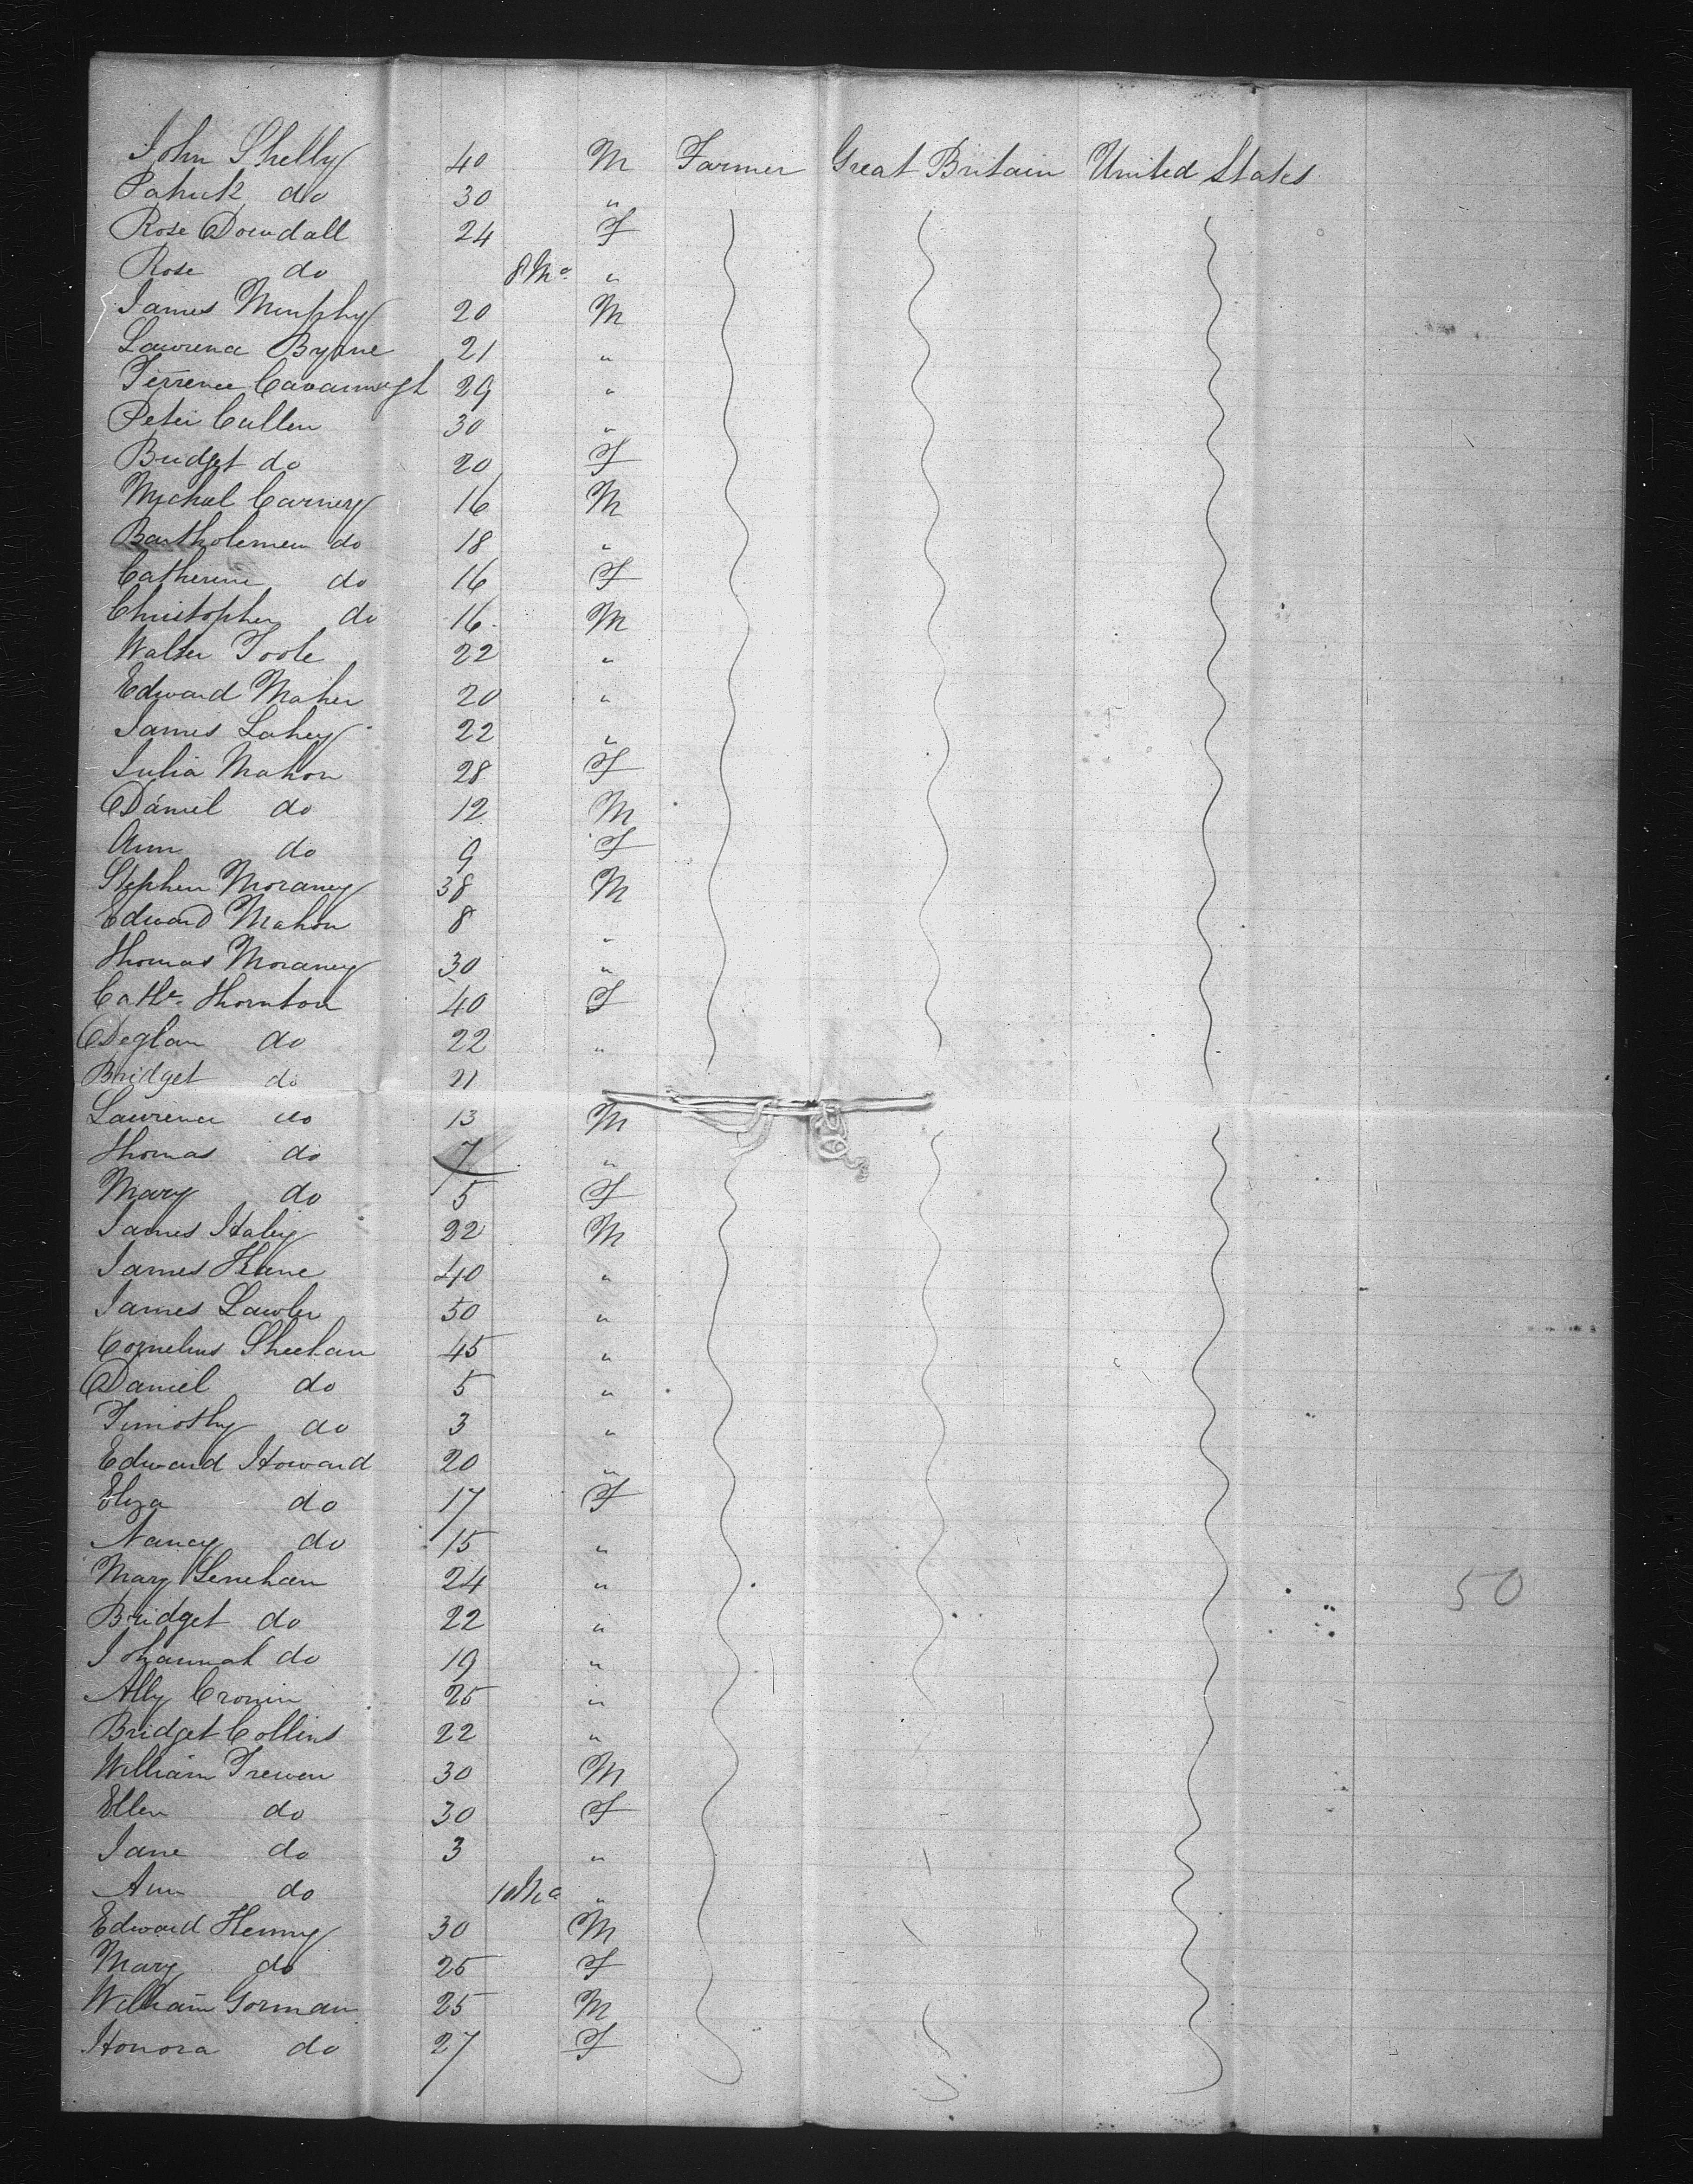 John Shelly 40 M Farmer Great Britain United States
Patrick do 30 "
Rose Dowdall 24 F
Rose do 8 Mo "
James Murphy 20 M
Lawrence Byrne 21 "
Terrence Cavannagh 29 "
Peter Cullen 30 "
Bridget do 20 F
Michael Carney 16 M
Bartholemew do 18 "
Catherine do 16 F
Christopher do 16 M
Walter Toole 22 "
Edward Maher 20 "
James Lahey 22 "
Julia Mahon 28 F
Daniel do 12 M
Ann do 9 F
Stephen Moraney 38 M
Edward Mahon 8 "
Thomas Moraney 30 "
Cathe. Thornton 40 F
Deglan do 22 "
Bridget do 21
Lawrence do 13 M
Thomas do 7 "
Mary do 5 F
James Haley 22 M
James Kane 40 "
James Lawler 50 "
Cornelius Sheehan 45 "
Daniel do 5 "
Timothy do 3 "
Edward Howard 20 "
Eliza do 17 F
Nancy do 15 "
Mary Lenehan 24 "
50
Bridget do 22 "
Johannah do 19 "
Ally Cronin 25 "
Bridget Collins 22 "
William Trewen 30 M
Ellen do 30 F
Jane do 3 "
Ann do 10 Mo "
Edward Henny 30 M
Mary do 25 F
William Gorman 25 M
Honora do 27 F